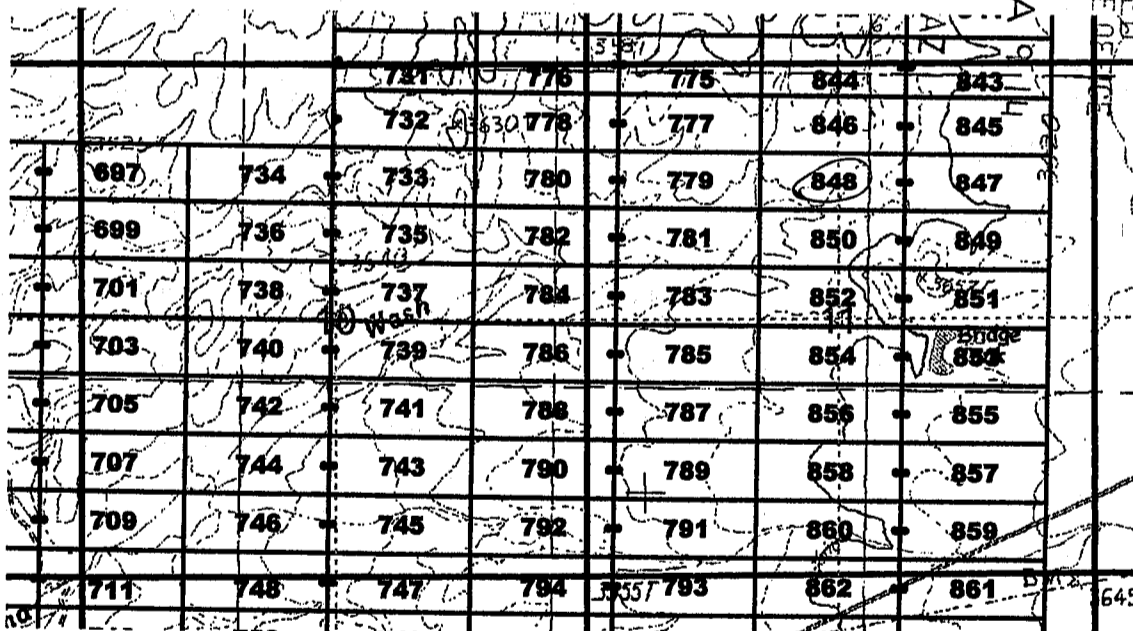 731 776 775 844 843
732 3630T 778 777 846 845
697 734 733 780 779 848 847
699 736 735 782 781 850 849
701 738 737 784 783 852 851
Wash
Bridge
703 740 739 786 785 854 853
705 742 741 788 787 856 855
707 744 743 790 789 858 857
709 746 745 792 791 860 859
711 748 747 794 793 862 861